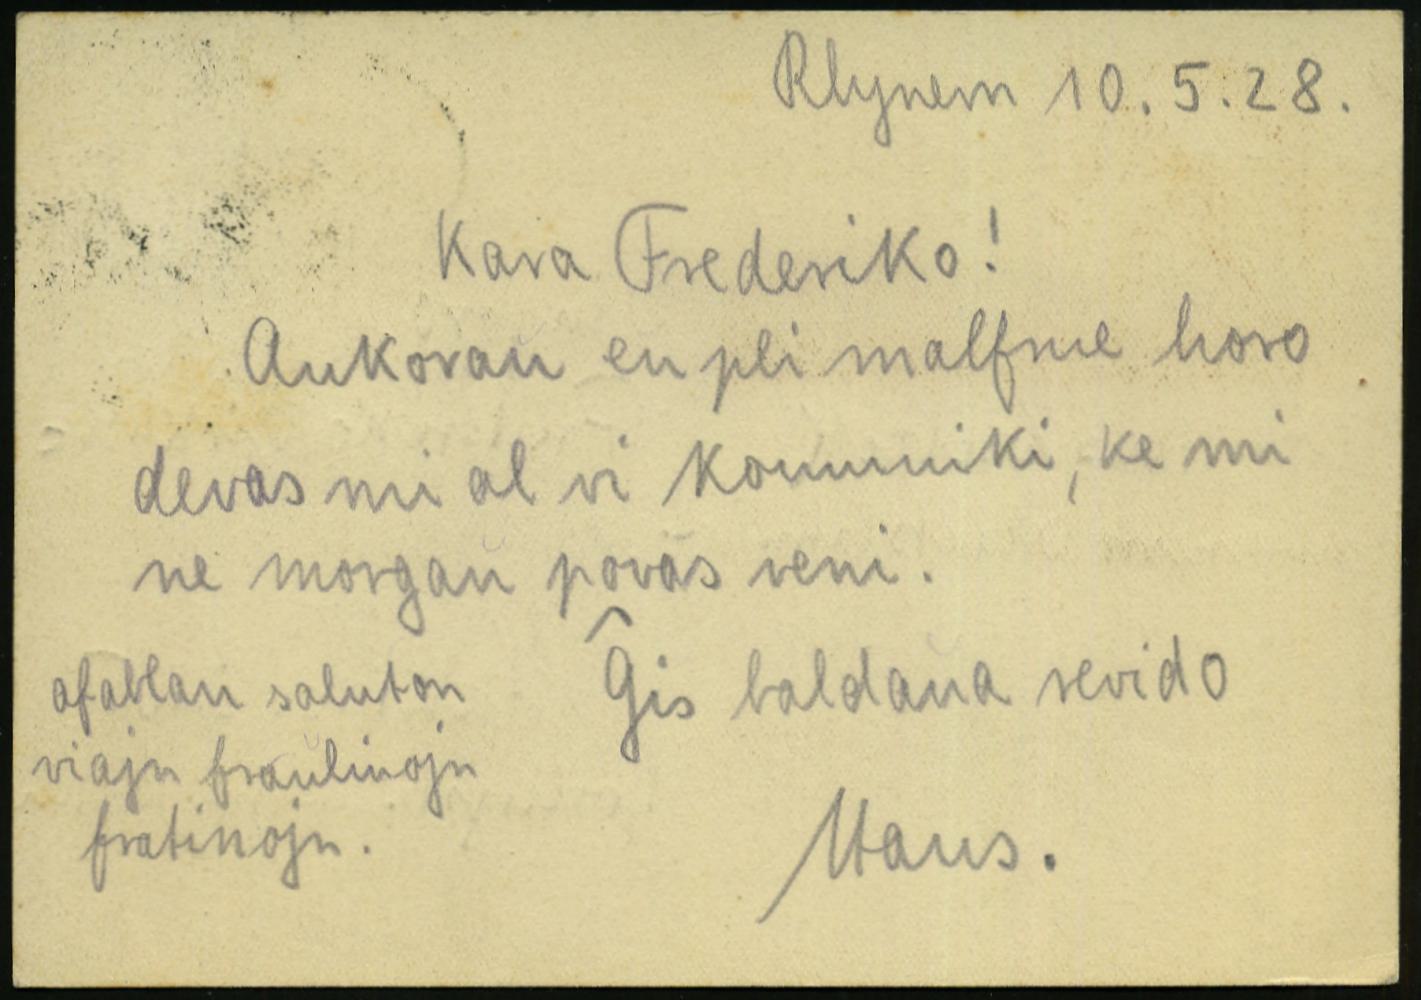 Rhynern 10.5.28.
Kara Frederiko!
Ankoraŭ en pli malfrue horo
devas mi al vi kommuniki, ke mi
ne morgaŭ povas veni.
Ĝis baldaŭa revido
Hans.
afablan saluton
viajn fraŭlinojn
fratinojn.